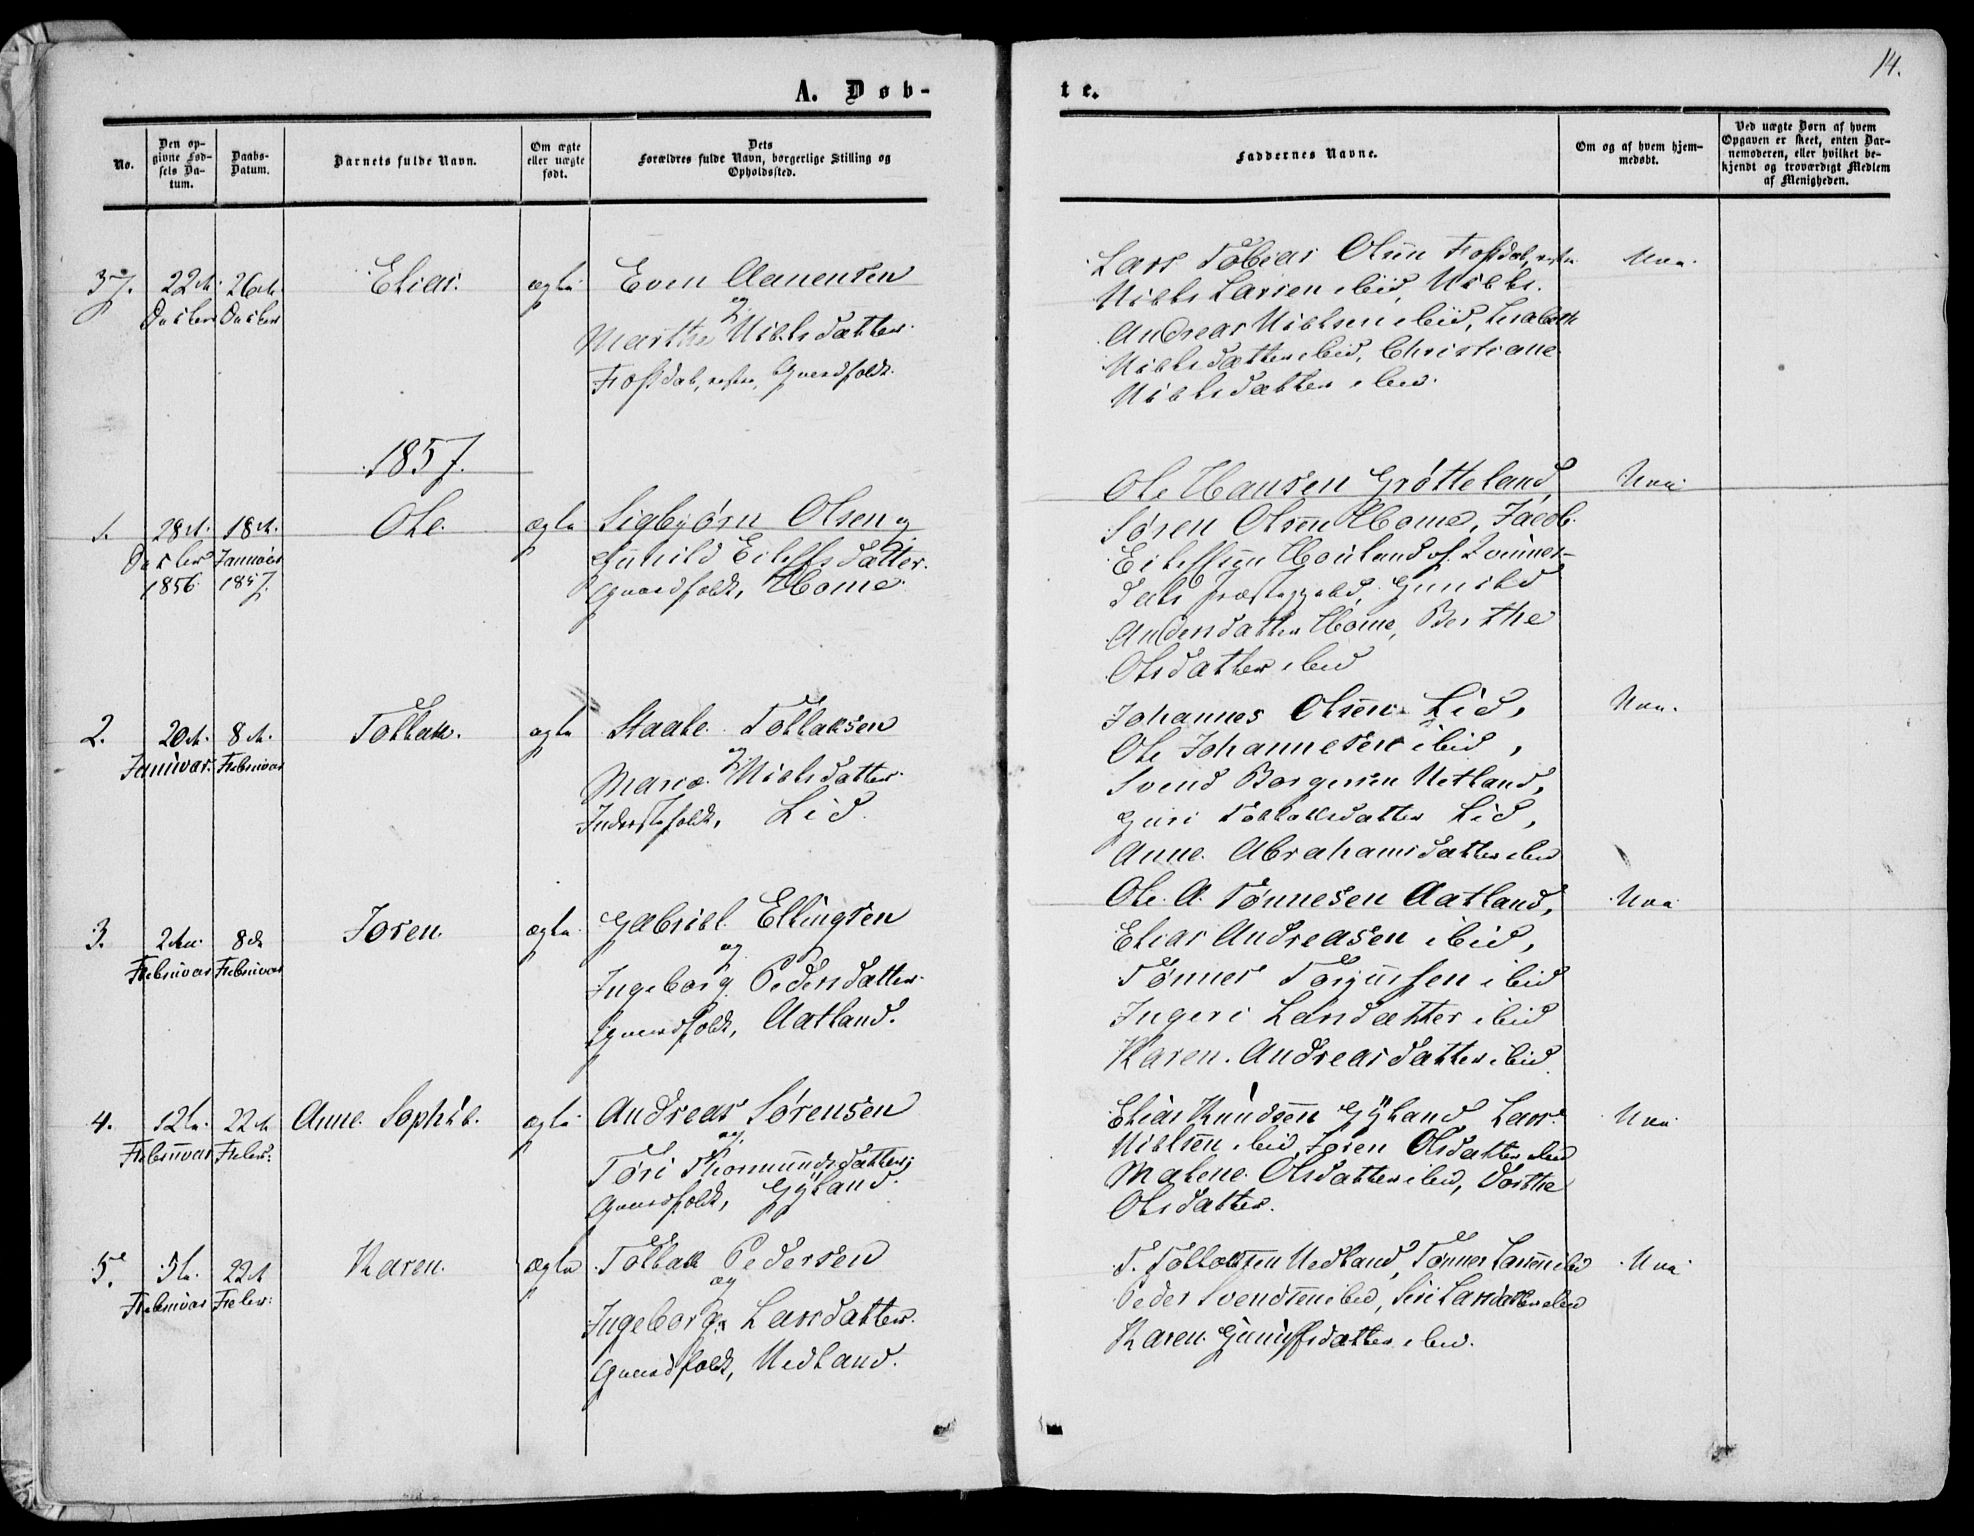 14.
A. Døb-
te.
No.
Den op-
givne Fød-
sels Da-
tum.
Daabs-
Datum.
Barnets fulde Navn.
Om ægte
eller uægte
født.
Dets
Forældres fulde Navn, borgerlige Stilling og
Opholdssted.
Faddernes Navne.
Om og af hvem hjem-
medøbt.
Ved uægte Børn af hvem
Opgaven er skeet, enten Bar-
nemoderen, eller hvilket be-
kjendt og troværdigt Medlem
af Menigheden.
37.
22de
26de
Elias.
ægte
Even Aanensen
og
Marthe Nielsdatter
Gaardfolk.
Lars Tobias Olsen
Niels Larsen ibid, Niels
Andreas Nielsen ibid,
Nielsdatter ibid, Christiane
Nielsdatter ibid.
1857.
1.
28de
1856.
18de
Januar
1857.
Ole.
ægte
Sigbjørn Olsen og
Gunild Eilefsdatter.
Gaardfolk, Home.
Ole Hansen Grøtteland
Søren Olsen Home, Jacob
Houland
dals Præstegjeld, Gunild
Home, Berthe
Olsdatter ibid
2.
20de
Januar.
8de
Februar
Tollak.
ægte
Staale Tollaksen
og
Marie Nielsdatter.
Inderstfolk, Lid.
Johannes Olsen Lid,
Ole Johannesen ibid,
Svend Borgersen Netland,
Guri Tollaksdatter Lid,
Anne Abrahamsdatter ibid
3.
2den
Februar
8de
Februar
Joren.
ægte
Gabriel Ellingsen
og
Ingeborg Pedersdatter
Gaardfolk, Aatland.
Ole A. Tønnesen Aatland,
Elias Andreasen ibid,
Tønnes ibid
Ingeri Larsdatter ibid
Karen Andreasdatter ibid.
4.
12te
Februar
22de
Febr:
Anne Sophie.
ægte
Andreas Sørensen
og
Tøri
Gaardfolk, Gyland.
Elias Knudsen Gyland Lars
Nielsen ibid, Joren Olsdatter ibid
Malene Olsdatter ibid, Dorthe
Olsdatter.
5.
5te
Februar
22de
Febr:
Karen.
ægte
Tollak Pedersen
og
Ingeborg Larsdatter.
Gaardfolk, Nedland.
T. Tollaksen Nedland, Tønnes Larsen ibid
Peder Svendsen ibid, Siri Larsdatter ibid
Karen ibid.